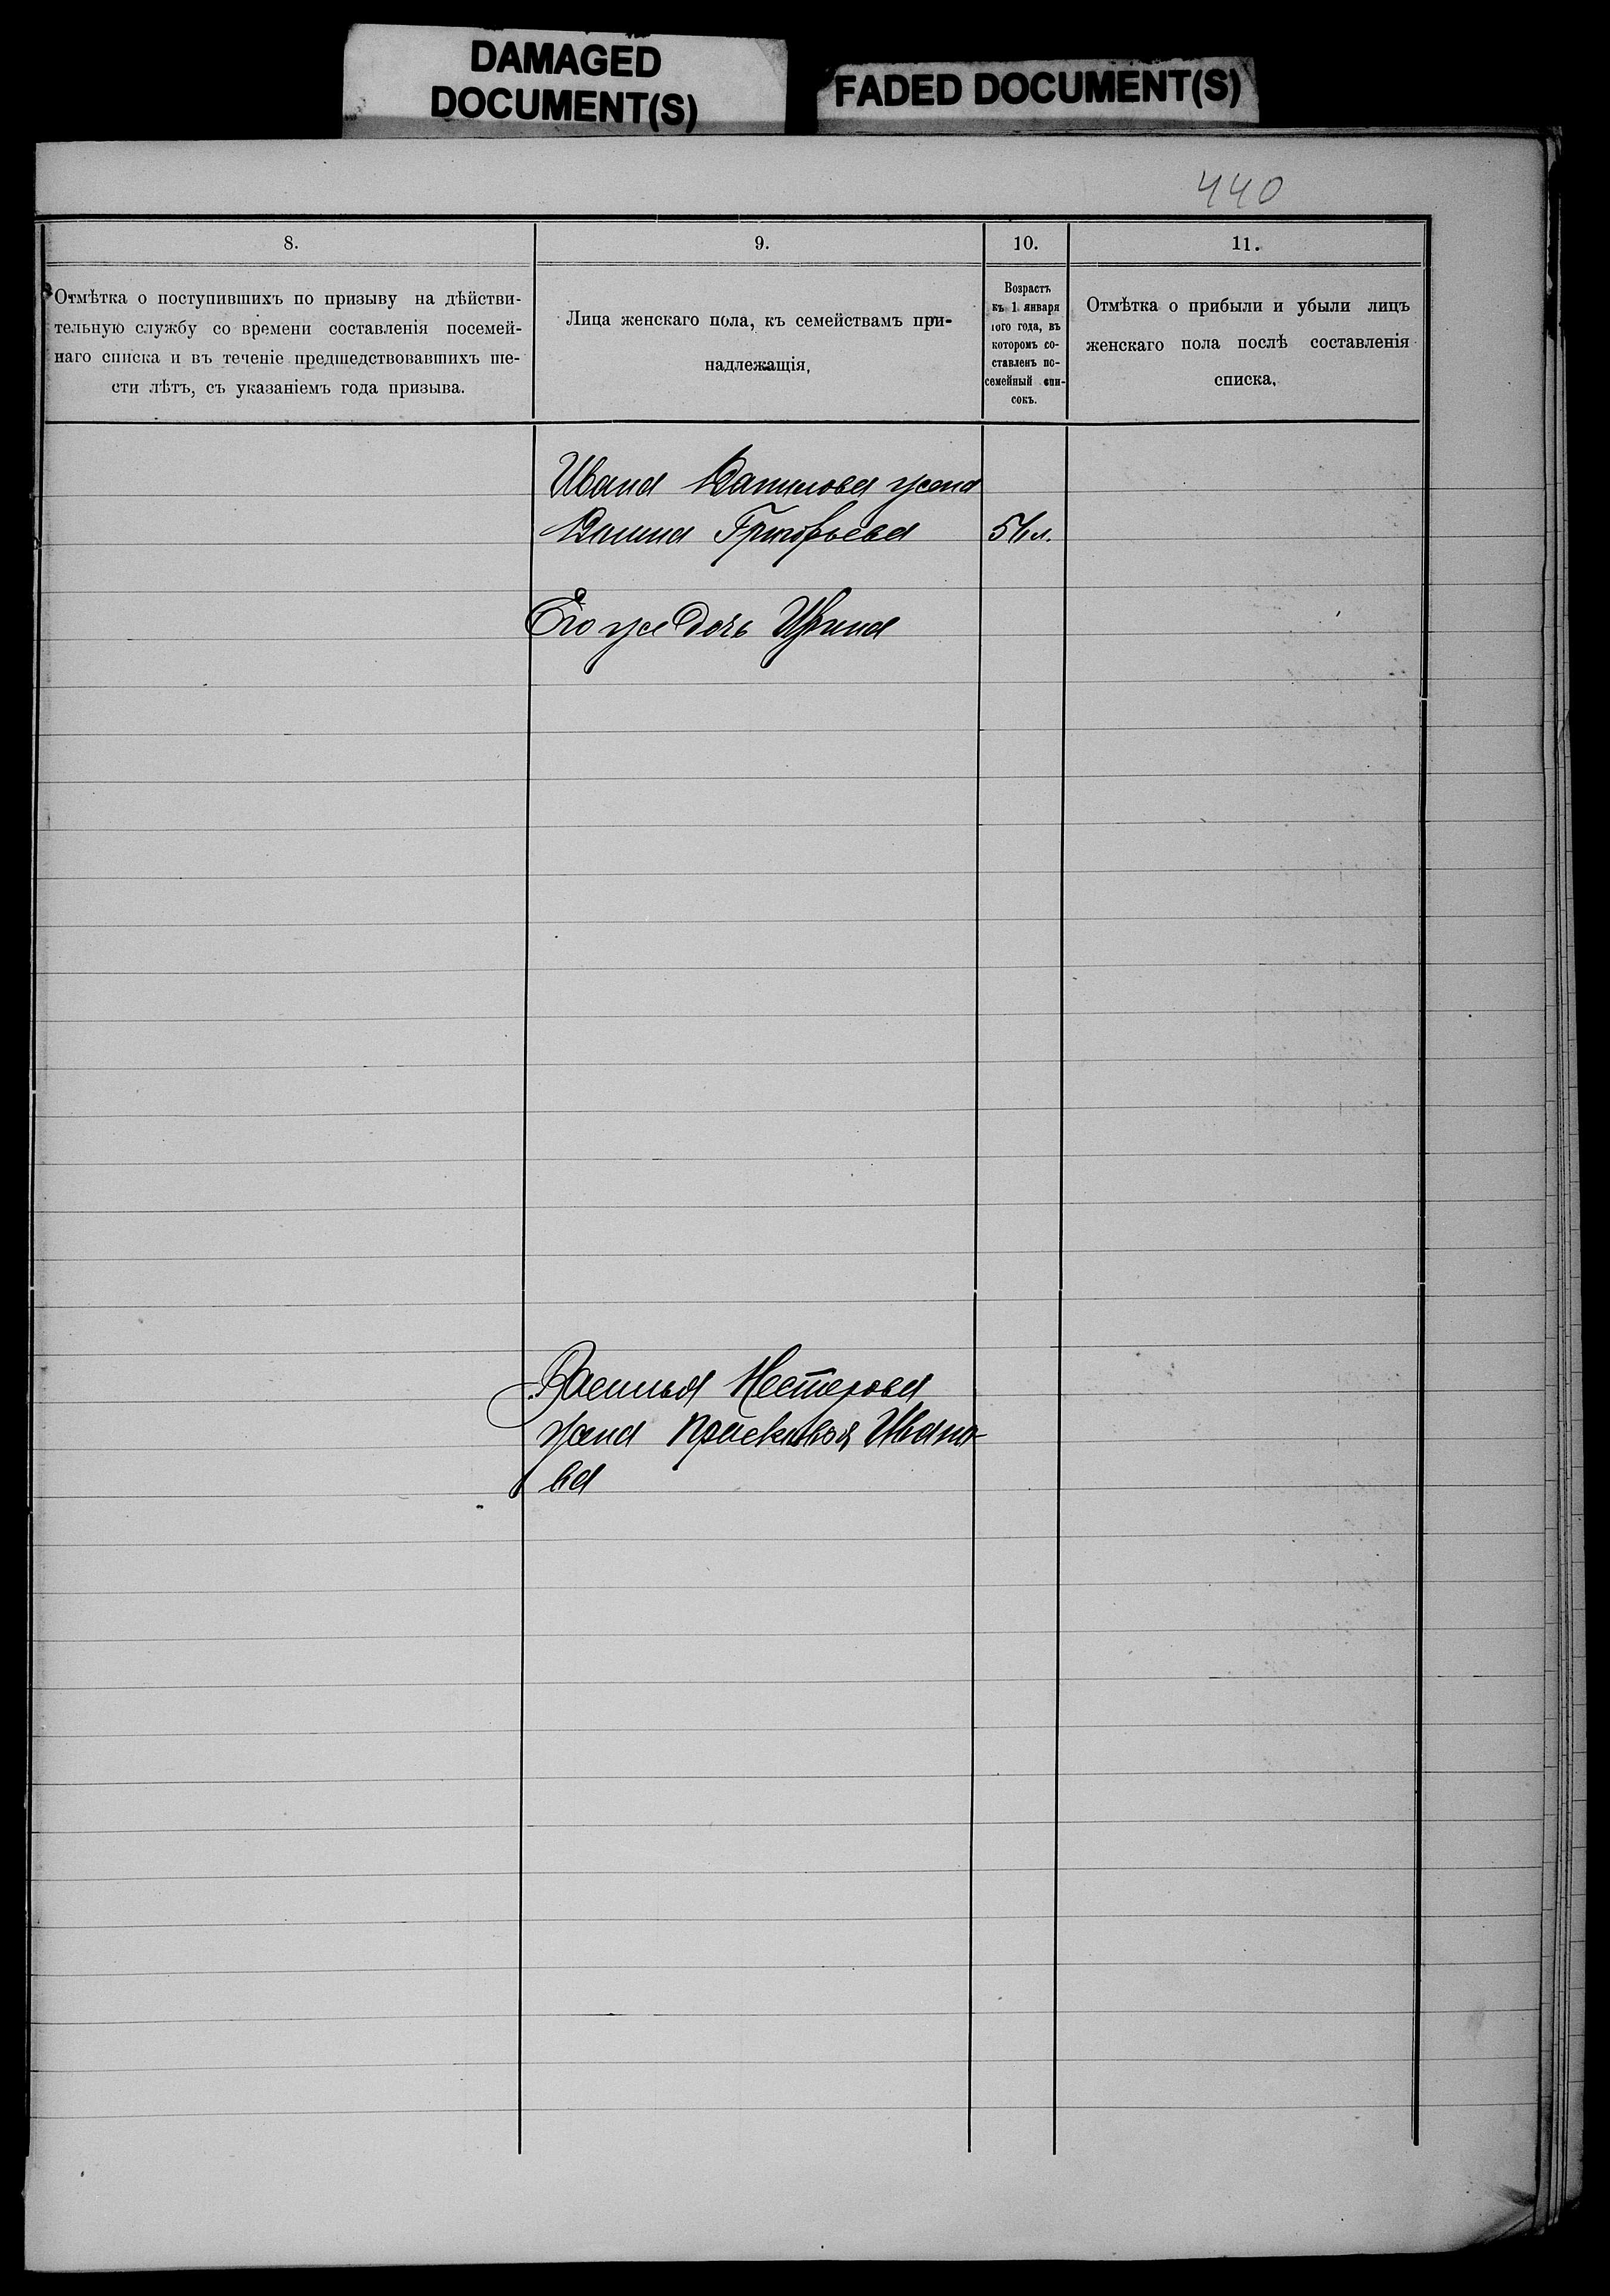 DAMAGED
DOCUMENT(S)
FADED DOCUMENT(S)
440
8.
9.
10.
11.
Отмѣтка о поступившихъ по призыву на дѣйстви-
тельную службу со времени составленія посемей-
наго списка и въ теченіе предшедствовавшихъ ше-
сти лѣтъ, съ указаніемъ года призыва.
Лица женскаго пола, къ семействамъ при-
надлежащія,
Возрастъ
къ 1 января
того года, въ
которомъ со-
ставленъ по-
семейный спи-
сокъ.
Отмѣтка о прибыли и убыли лицъ
женскаго пола послѣ составленія
списка,
Ивана Данилова жена
Григорьева
56 л.
Его же дочь Ирина
Василья Нестерова
жена Прасковья Ивано-
ва